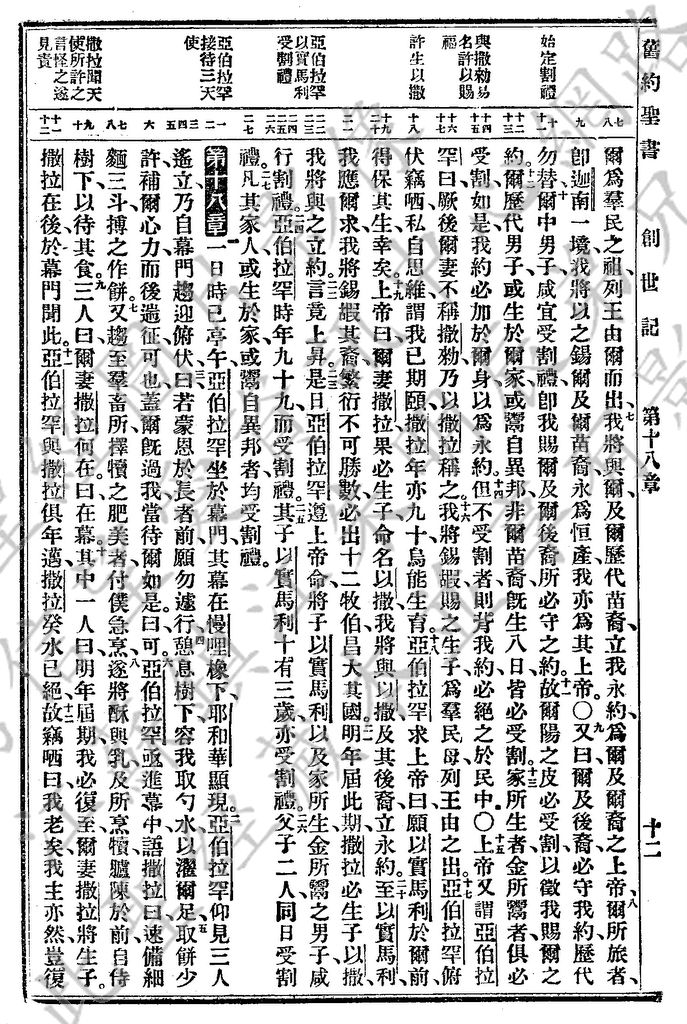 舊約聖書 創世記 第十八章 十二
始定割禮
與撒勑易名許以賜福
許生以撒
亞伯拉罕以實馬利受割禮
亞伯拉罕接待三天使
撒拉聞天使所許之言怪之遂見責
七八 爾爲羣民之祖、列王由爾而出、七我將與爾及爾歷代苗裔、立我永約、爲爾及爾裔之上帝、八爾所旅者、
九 卽迦南一境、我將以之錫爾及爾苗裔、永爲恒產、我亦爲其上帝。〇九又曰、爾及後裔、必守我約、歷代
十十一 勿替、十爾中男子、咸宜受割禮、卽我賜爾及爾後裔所必守之約、十一故爾陽之皮必受割、以徵我賜爾之
十二十三 約、十二爾歷代男子、或生於爾家、或鬻自異邦、非爾苗裔、旣生八日、皆必受割、十三家所生者、金所鬻者、俱必
十四十五 受割、如是我約必加於爾身、以爲永約、十四但不受割者、則背我約、必絕之於民中、〇十五上帝又謂亞伯拉
十六十七 罕曰、厥後爾妻不稱撒勑、乃以撒拉稱之、十六我將錫嘏、賜之生子、爲羣民母、列王由之出、十七亞伯拉罕俯
十八 伏竊哂、私自思維、謂我已期頤、撒拉年亦九十、烏能生育、十八亞伯拉罕求上帝曰、願以實馬利於爾前、
十九二十 得保其生、幸矣。十九上帝曰、爾妻撒拉、果必生子、命名以撒、我將與以撒、及其後裔、立永約、二十至以實馬利、
二一 我應爾求、我將錫嘏、其裔繁衍、不可勝數、必出十二牧伯、昌大其國、二一明年屆此期、撒拉必生子以撒、
二二二三 我將與之立約、二二言竟上昇、二三是日亞伯拉罕遵上帝命、將子以實馬利、以及家所生、金所鬻之男子、咸
二四二五二六 行割禮。二四亞伯拉罕時年九十九而受割禮。二五其子以實馬利十有三歲、亦受割禮。二六父子二人、同日受割
二七 禮。二七凡其家人、或生於家、或鬻自異邦者、均受割禮。
一二 第十八章 一日時已亭午、亞伯拉罕坐於幕門、其幕在幔哩橡下、耶和華顯現、二亞伯拉罕仰見三人
三四五 遙立、乃自幕門趨迎、俯伏曰、三若蒙恩於長者前、願勿遽行、四憩息樹下、容我取勺水、以濯爾足、五取餅少
六 許、補爾心力、而後遄征可也、蓋爾旣過我、當待爾如是、曰可、六亞伯拉罕亟進幕中、語撒拉曰、速備細
七八 麵三斗、摶之作餅、七又趨至羣畜所、擇犢之肥美者、付僕急烹、八遂將酥與乳、及所烹犢臚陳於前、自侍
九十 樹下、以待其食、九三人曰、爾妻撒拉何在、曰在幕、十其中一人曰、明年屆期、我必復至、爾妻撒拉將生子。
十一十二 撒拉在後、於幕門聞此、十一亞伯拉罕與撒拉俱年邁、撒拉癸水已絕、十二故竊哂曰、我老矣、我主亦然、豈復